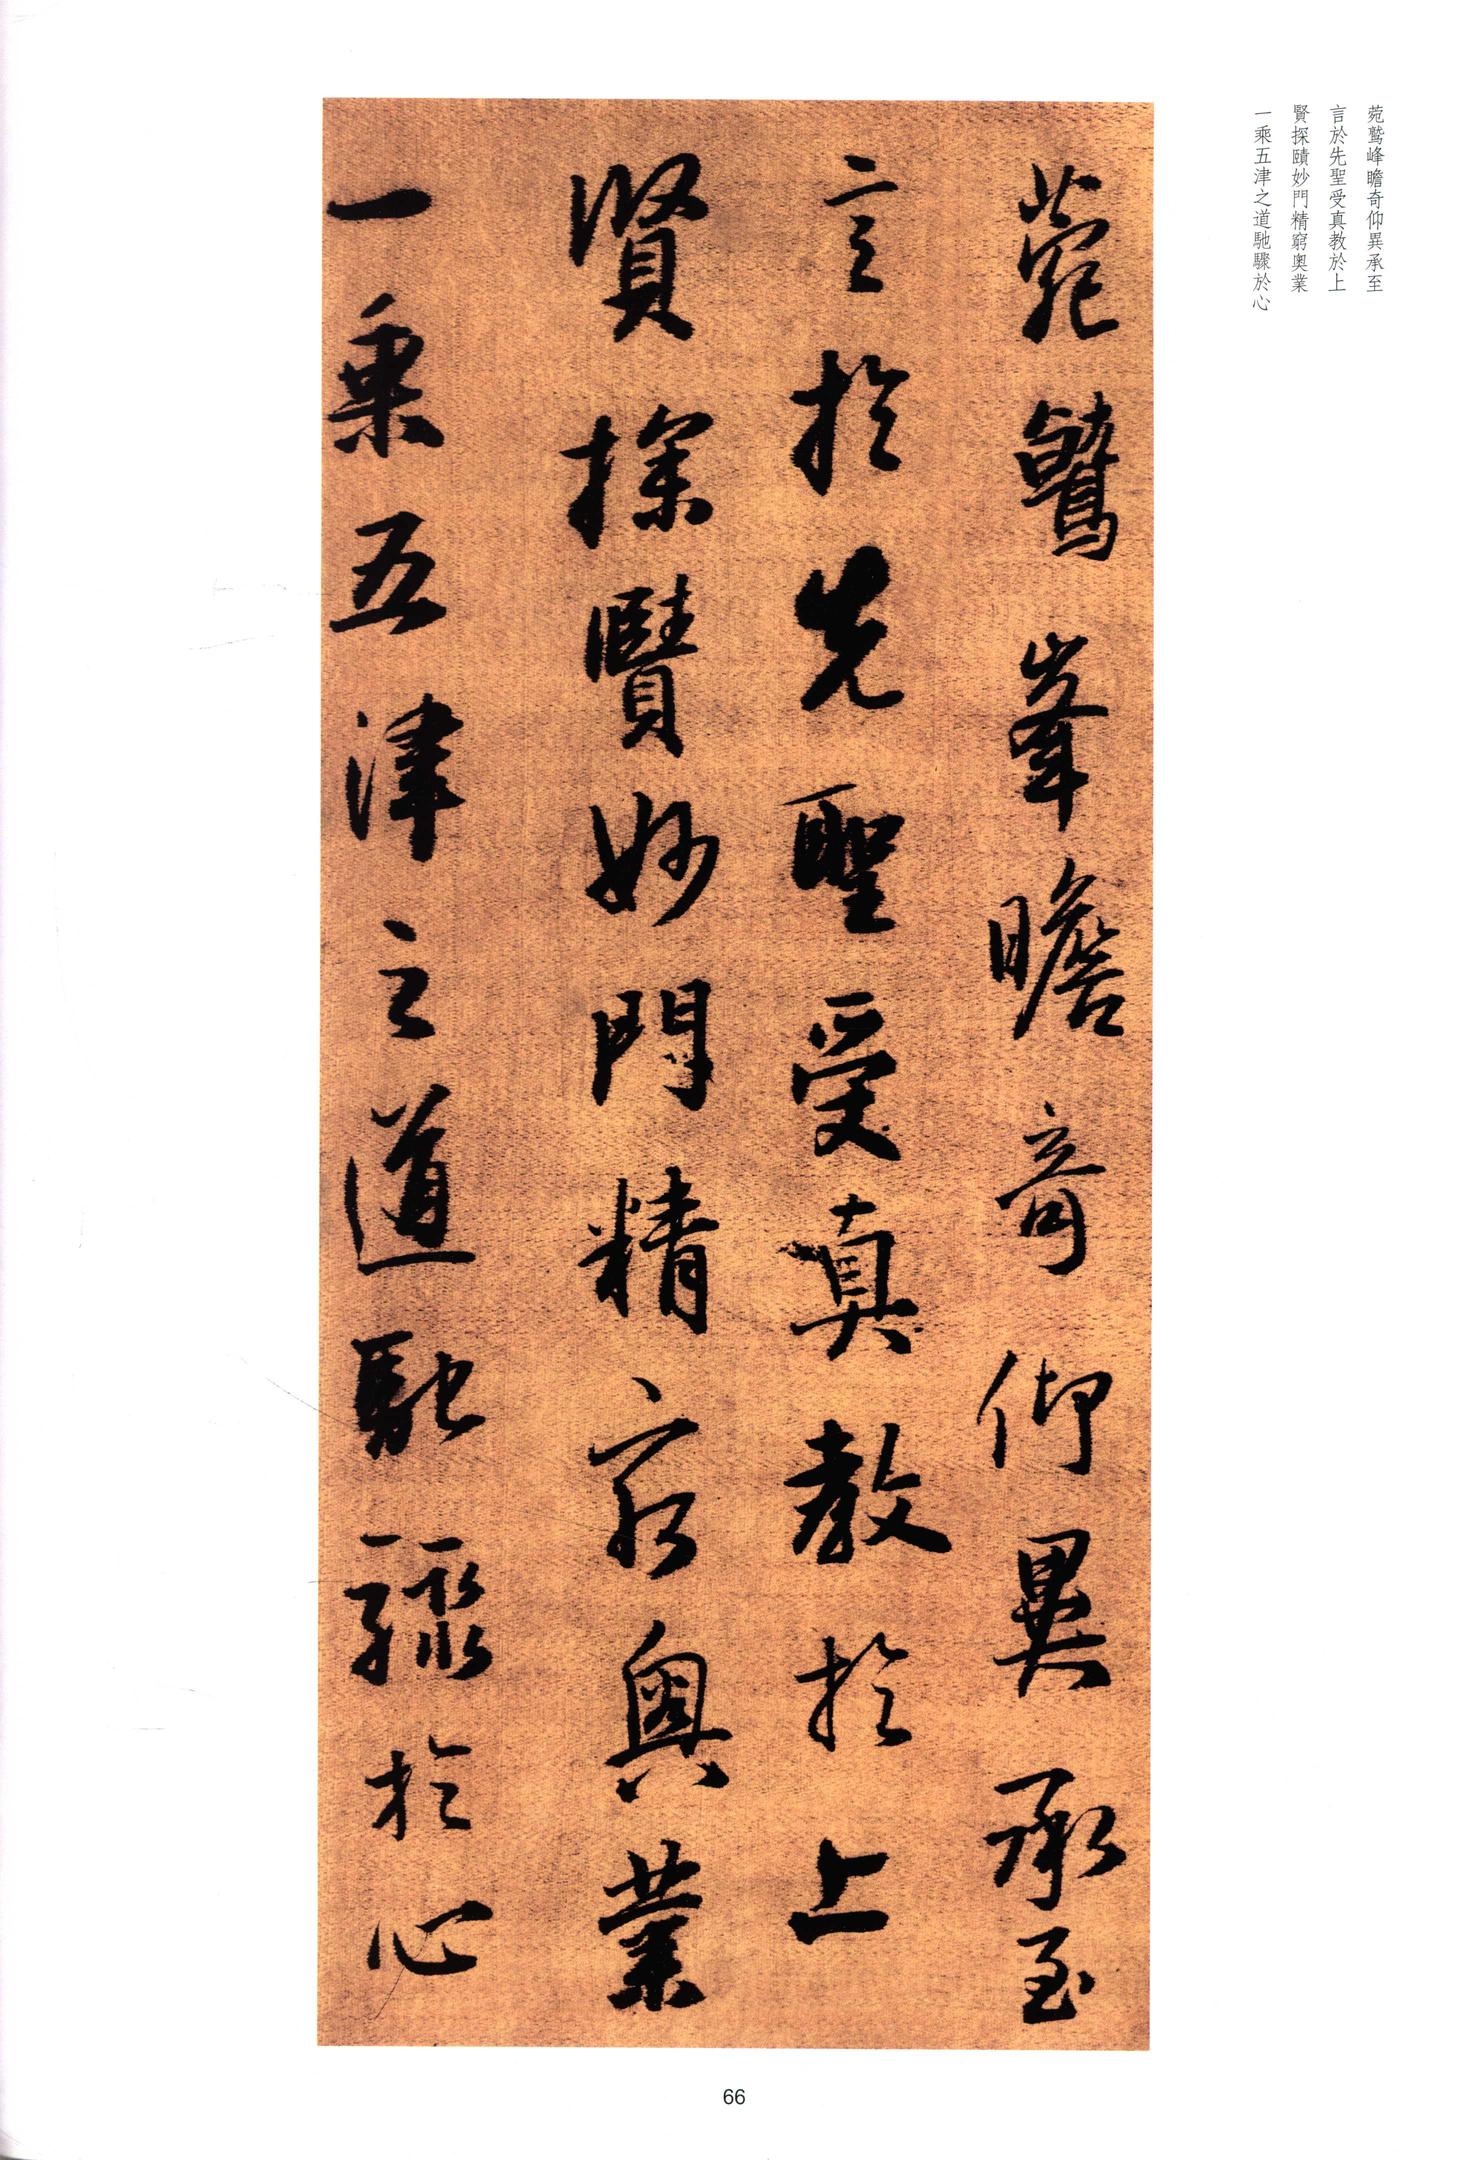 菀鷲峰瞻奇仰異承至
言於先聖受真教於上
賢探賾妙門精窮奧業
一乘五津之道馳驟於心
菀鷲峯瞻奇仰異承至
言於先聖受真教於上
賢探賾妙門精窮奧業
一乘五津之道馳驟於心
66